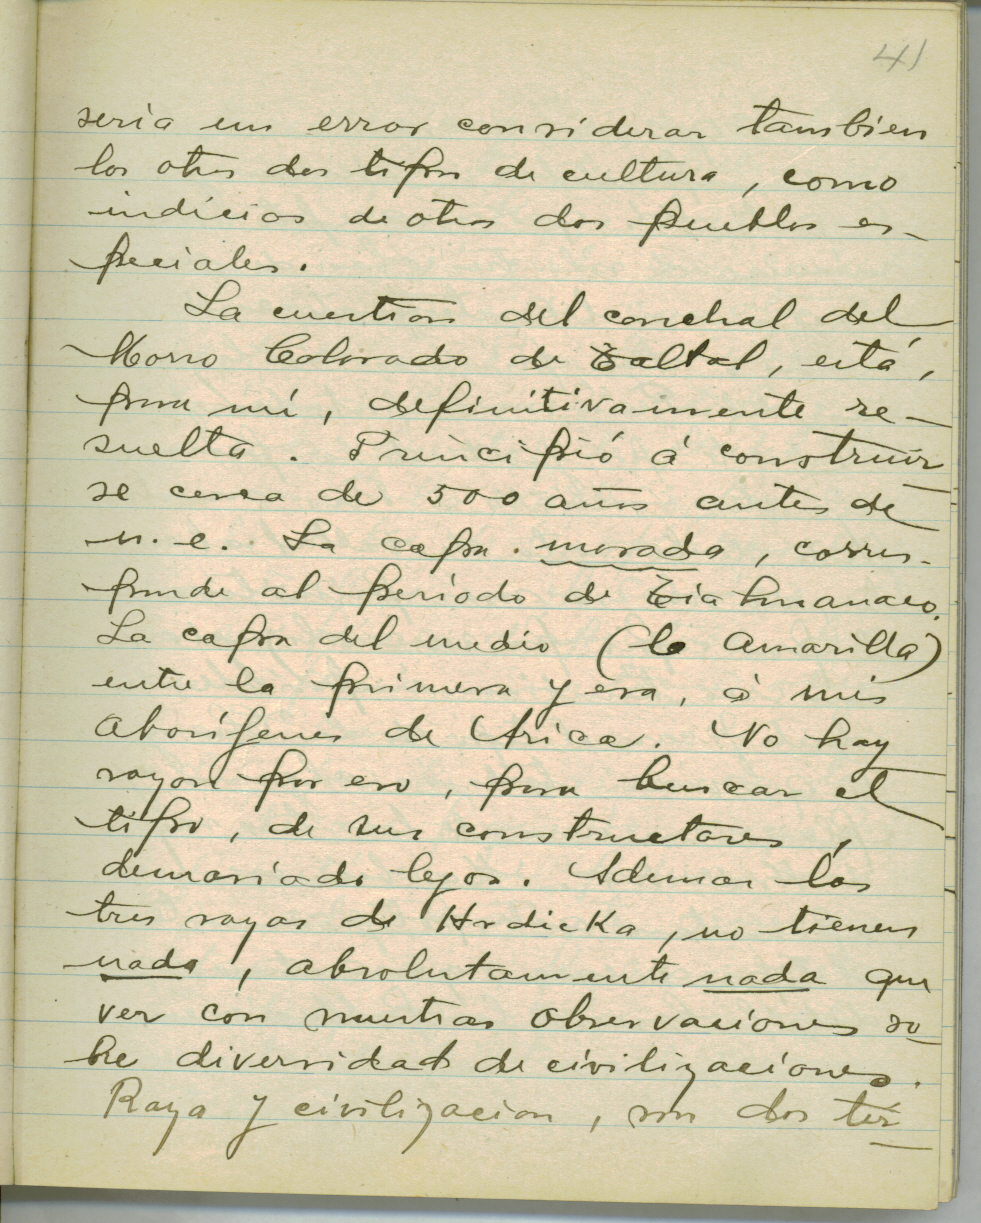 41
sería un error considerar tambien
los otros dos tipos de cultura, como
indicios de otros dos pueblos es-
peciales.
La cuestion del conchal del
Morro Colorado de Taltal, está,
para mí, definitivamente re-
suelta. Principió á construir
se cerca de 500 años antes de
n. e. La capa morada, corres-
ponde al período de Tiahuanaco.
La capa del medio (la amarilla)
entre la primera y esa, á mis
aborígenes de Arica. No hay
razon por eso, para buscar el
tipo, de sus constructores,
demasiado lejos. Ademas las
tres razas de Hrdicka, no tienen
nada, absolutamente nada que
ver con nuestras observaciones so
bre diversidad de civilizaciones.
Raza y civilizacion, son dos tér